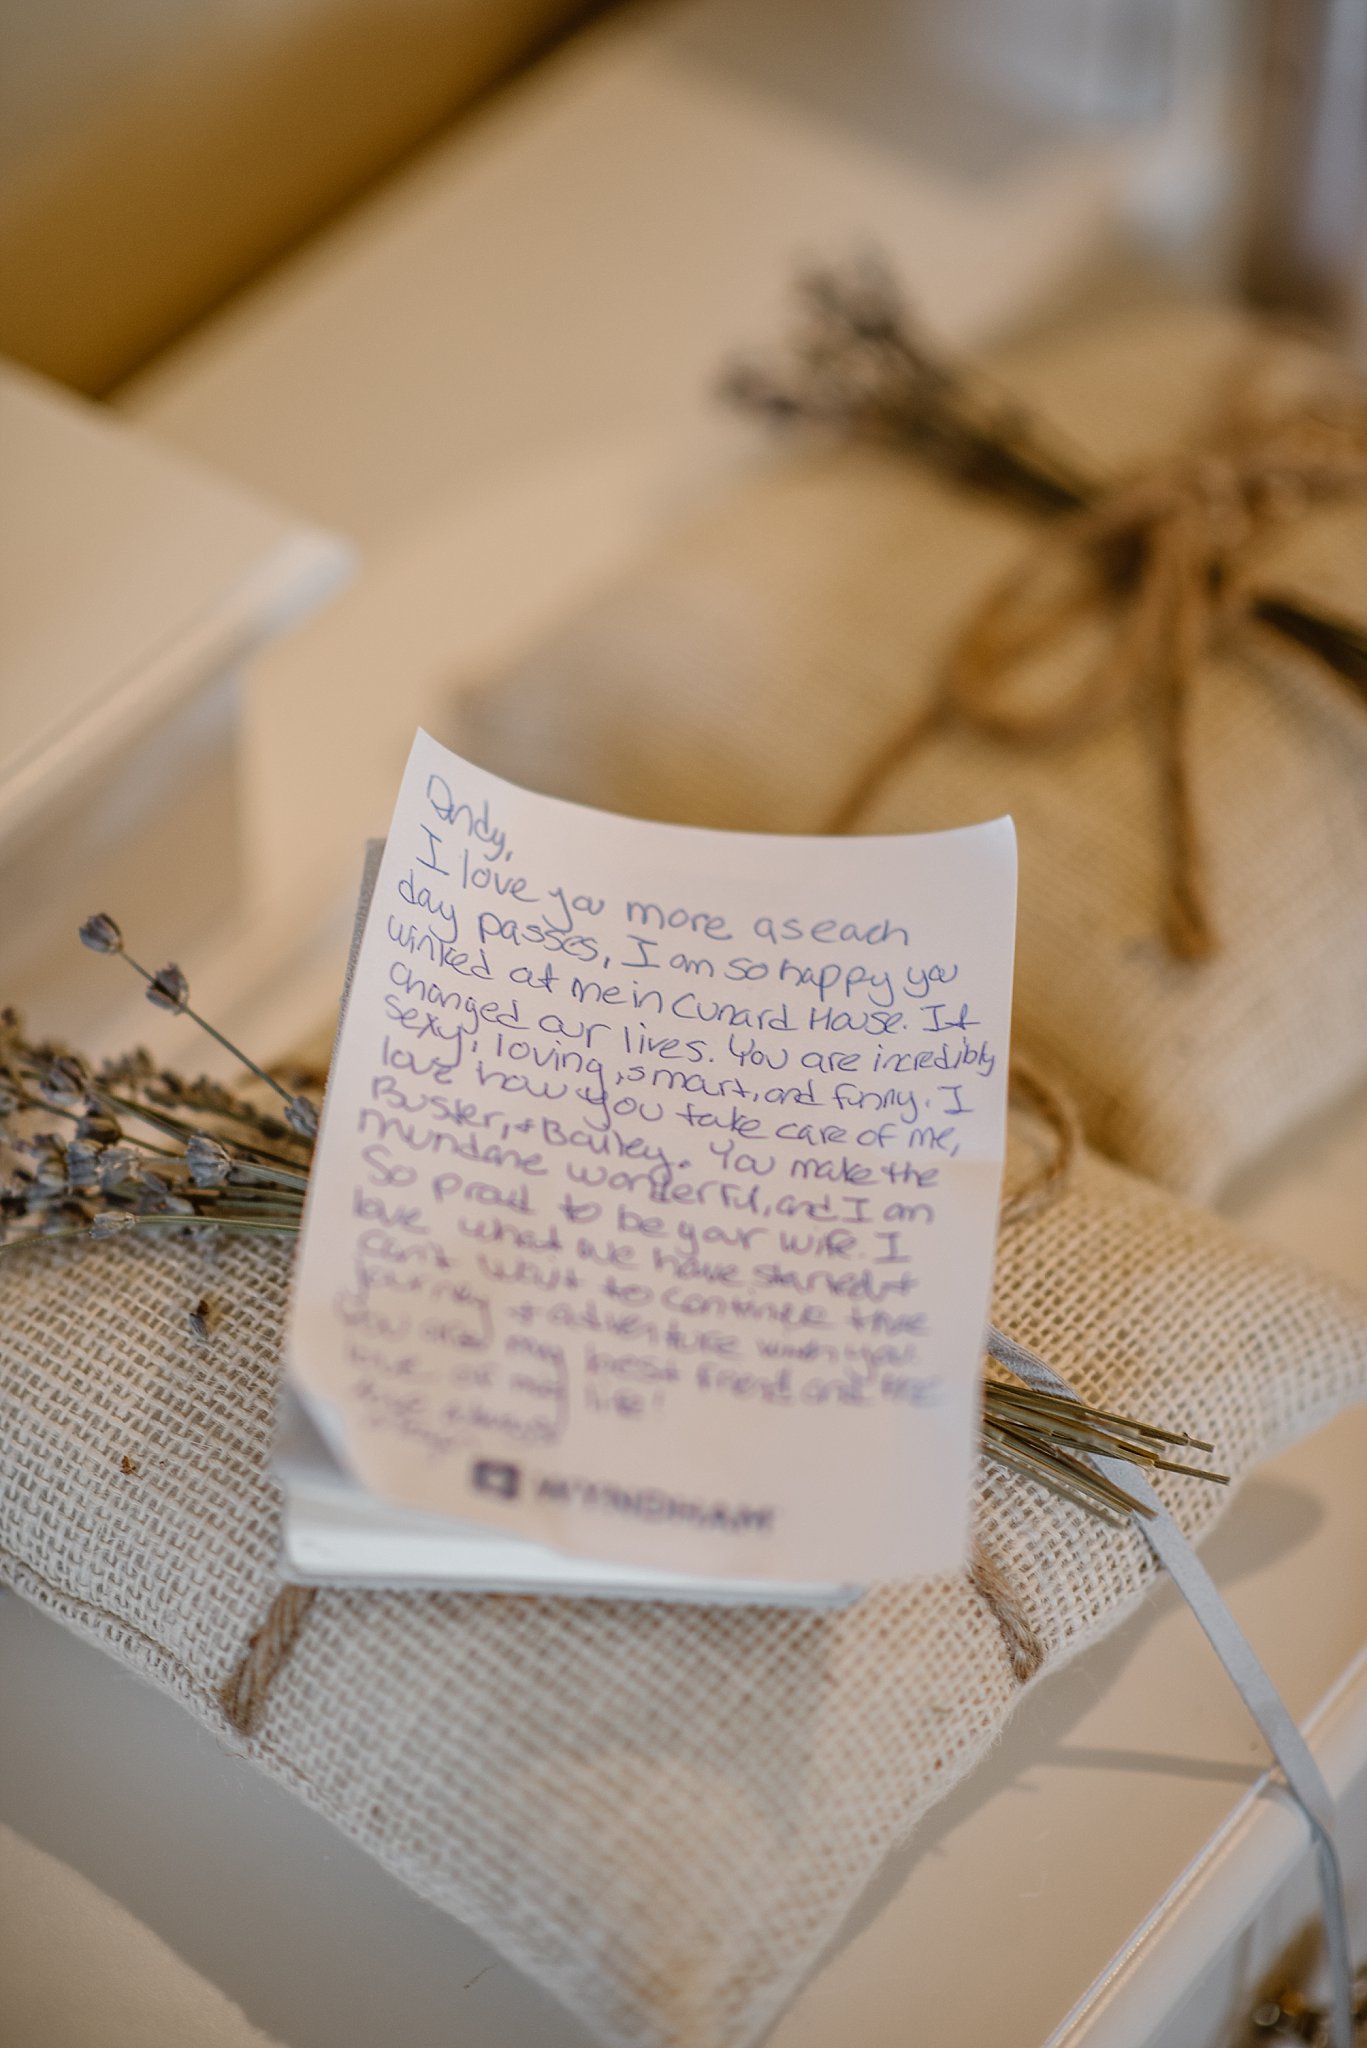 Andy,
I love you more as each
day passes, I am so happy you
winked at me in Cunard House. It
changed our lives. You are incredibly
sexy, loving, smart, and funny. I
love how you take care of me,
Buster, + Bailey. You make the
mundane wonderful, and I am
so proud to be your wife. I
love what we have started +
can't wait to continue the
journey + adventure with you.
You are my best friend and the
love of my life!
WYNDHAM